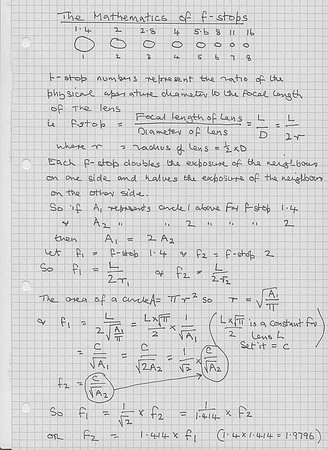 The Mathematics of f-stops
1.4 2 2.8 4 5.6 8 11 16
1 2 3 4 5 6 7 8
f-stop numbers represent the ratio of the
physical aperature diameter to the focal length
of the lens
ie f-stop = Focal length of Lens / Diameter of Lens = L/D = L/2r
where r = radius of Lens = ½ x D
Each f-stop doubles the exposure of the neighbour
on one side and halves the exposure of the neighbour
on the other side.
So if A₁ represents circle 1 above for f-stop 1.4
& A₂ " " 2 " " " 2
then A₁ = 2A₂
Let f₁ = f-stop 1.4 & f₂ = f-stop 2
So f₁ = L/2r₁ & f₂ = L/2r₂
The area of a circle A = πr² so r = √(A₁/π)
& f₁ = L/(2√(A₁/π)) = L x √π/2 x 1/√A₁
(L x √π/2 is a constant for
Lens L
Set it = C)
= C/√A₁ = C/√2A₂ = 1/√2 x C/√A₂
f₂ = C/√A₂
So f₁ = 1/√2 x f₂ = 1/1.414 x f₂
or f₂ = 1.414 x f₁ (1.4 x 1.414 = 1.9796)